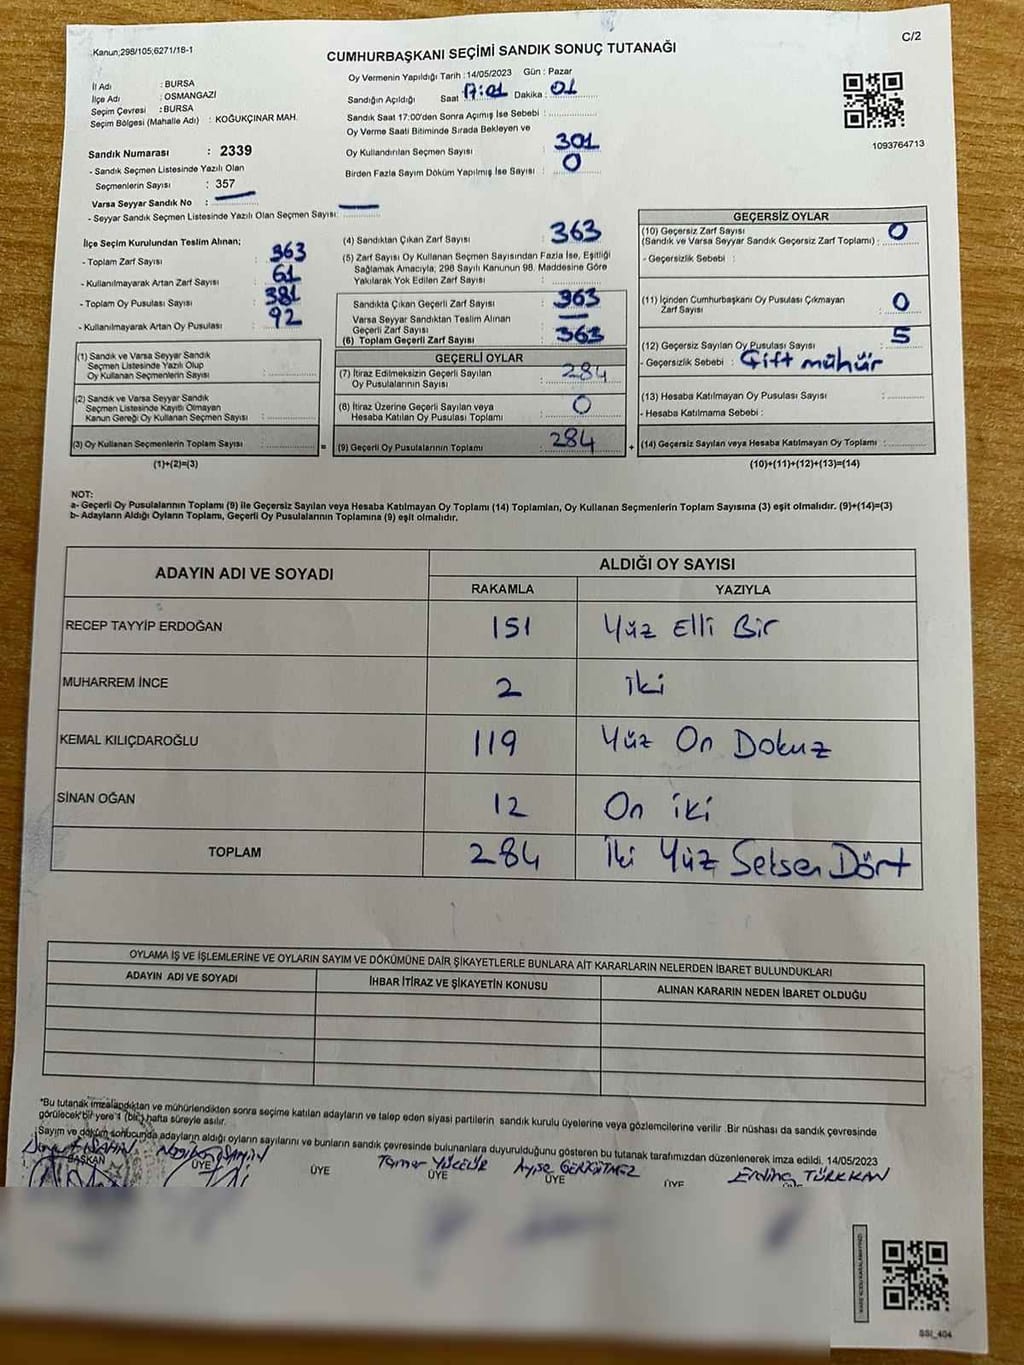 Kanun;298/105;6271/18-1
C/2
CUMHURBAŞKANI SEÇİMİ SANDIK SONUÇ TUTANAĞI
İl Adı : BURSA
İlçe Adı : OSMANGAZİ
Seçim Çevresi : BURSA
Seçim Bölgesi (Mahalle Adı) : KOĞUKÇINAR MAH.
Sandık Numarası : 2339
- Sandık Seçmen Listesinde Yazılı Olan
Seçmenlerin Sayısı : 357
Varsa Seyyar Sandık No : —
- Seyyar Sandık Seçmen Listesinde Yazılı Olan Seçmen Sayısı: —
Oy Vermenin Yapıldığı Tarih : 14/05/2023 Gün : Pazar
Sandığın Açıldığı Saat 17:01 Dakika : 01
Sandık Saat 17:00'den Sonra Açımış İse Sebebi :
Oy Verme Saati Bitiminde Sırada Bekleyen ve
Oy Kullandırılan Seçmen Sayısı 301
Birden Fazla Sayım Döküm Yapılmış İse Sayısı : 0
1093764713
İlçe Seçim Kurulundan Teslim Alınan;
- Toplam Zarf Sayısı : 363
- Kullanılmayarak Artan Zarf Sayısı : 61
- Toplam Oy Pusulası Sayısı : 381
- Kullanılmayarak Artan Oy Pusulası : 92
(1) Sandık ve Varsa Seyyar Sandık
Seçmen Listesinde Yazılı Olup
Oy Kullanan Seçmenlerin Sayısı :
(2) Sandık ve Varsa Seyyar Sandık
Seçmen Listesinde Kayıtlı Olmayan
Kanun Gereği Oy Kullanan Seçmen Sayısı :
(3) Oy Kullanan Seçmenlerin Toplam Sayısı :
(1)+(2)=(3)
(4) Sandıktan Çıkan Zarf Sayısı : 363
(5) Zarf Sayısı Oy Kullanan Seçmen Sayısından Fazla İse, Eşitliği
Sağlamak Amacıyla; 298 Sayılı Kanunun 98. Maddesine Göre
Yakılarak Yok Edilen Zarf Sayısı :
Sandıkta Çıkan Geçerli Zarf Sayısı : 363
Varsa Seyyar Sandıktan Teslim Alınan
Geçerli Zarf Sayısı : —
(6) Toplam Geçerli Zarf Sayısı : 363
GEÇERLİ OYLAR
(7) İtiraz Edilmeksizin Geçerli Sayılan
Oy Pusulalarının Sayısı : 284
(8) İtiraz Üzerine Geçerli Sayılan veya
Hesaba Katılan Oy Pusulası Toplamı : 0
= (9) Geçerli Oy Pusulalarının Toplamı : 284 +
GEÇERSİZ OYLAR
(10) Geçersiz Zarf Sayısı
(Sandık ve Varsa Seyyar Sandık Geçersiz Zarf Toplamı) : 0
- Geçersizlik Sebebi :
(11) İçinden Cumhurbaşkanı Oy Pusulası Çıkmayan
Zarf Sayısı : 0
(12) Geçersiz Sayılan Oy Pusulası Sayısı : 5
- Geçersizlik Sebebi : Çift mühür
(13) Hesaba Katılmayan Oy Pusulası Sayısı :
- Hesaba Katılmama Sebebi :
(14) Geçersiz Sayılan veya Hesaba Katılmayan Oy Toplamı :
(10)+(11)+(12)+(13)=(14)
NOT:
a- Geçerli Oy Pusulalarının Toplamı (9) ile Geçersiz Sayılan veya Hesaba Katılmayan Oy Toplamı (14) Toplamları, Oy Kullanan Seçmenlerin Toplam Sayısına (3) eşit olmalıdır. (9)+(14)=(3)
b- Adayların Aldığı Oyların Toplamı, Geçerli Oy Pusulalarının Toplamına (9) eşit olmalıdır.
ADAYIN ADI VE SOYADI ALDIĞI OY SAYISI
RAKAMLA YAZIYLA
RECEP TAYYİP ERDOĞAN 151 Yüz Elli Bir
MUHARREM İNCE 2 iki
KEMAL KILIÇDAROĞLU 119 Yüz On Dokuz
SİNAN OĞAN 12 On iki
TOPLAM 284 İki Yüz Seksen Dört
OYLAMA İŞ VE İŞLEMLERİNE VE OYLARIN SAYIM VE DÖKÜMÜNE DAİR ŞİKAYETLERLE BUNLARA AİT KARARLARIN NELERDEN İBARET BULUNDUKLARI
ADAYIN ADI VE SOYADI İHBAR İTİRAZ VE ŞİKAYETİN KONUSU ALINAN KARARIN NEDEN İBARET OLDUĞU
*Bu tutanak imzalandıktan ve mühürlendikten sonra seçime katılan adayların ve talep eden siyasi partilerin sandık kurulu üyelerine veya gözlemcilerine verilir .Bir nüshası da sandık çevresinde
görülecek bir yere 1 (bir) hafta süreyle asılır.
Sayım ve döküm sonucunda adayların aldığı oyların sayılarını ve bunların sandık çevresinde bulunanlara duyurulduğunu gösteren bu tutanak tarafımızdan düzenlenerek imza edildi. 14/05/2023
ŞAHİN Tamer YÜCELİR Ayşe GERÇİTMEZ Erdinç TÜRKKAN
BAŞKAN ÜYE ÜYE ÜYE ÜYE ÜYE
SSİ_404